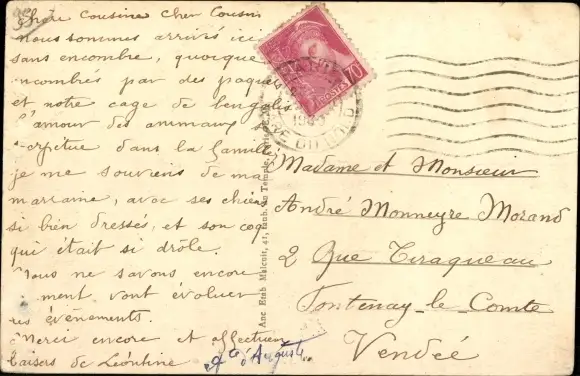 Chère Cousine Cher Cousin
Nous sommes arrivés ici
sans encombre, quoique
encombrés par des paquets
et notre cage de bengalis
l'amour des animaux
se perpetue dans la famille
je me souviens de ma
marraine, avec ses chiens
si bien dressés, et son coq
qui était si drôle.
Nous ne savons encore
comment vont évoluer
les évènements.
Merci encore et affectueux
baisers de Léontine
et d'Auguste
POSTES 70
GARE DU NORD
Anc Etab Malcuit, 41, Faub. du Temple
Madame et Monsieur
André Monneyre Morand
2 Rue Tiraqueau
Fontenay-le-Comte
Vendée